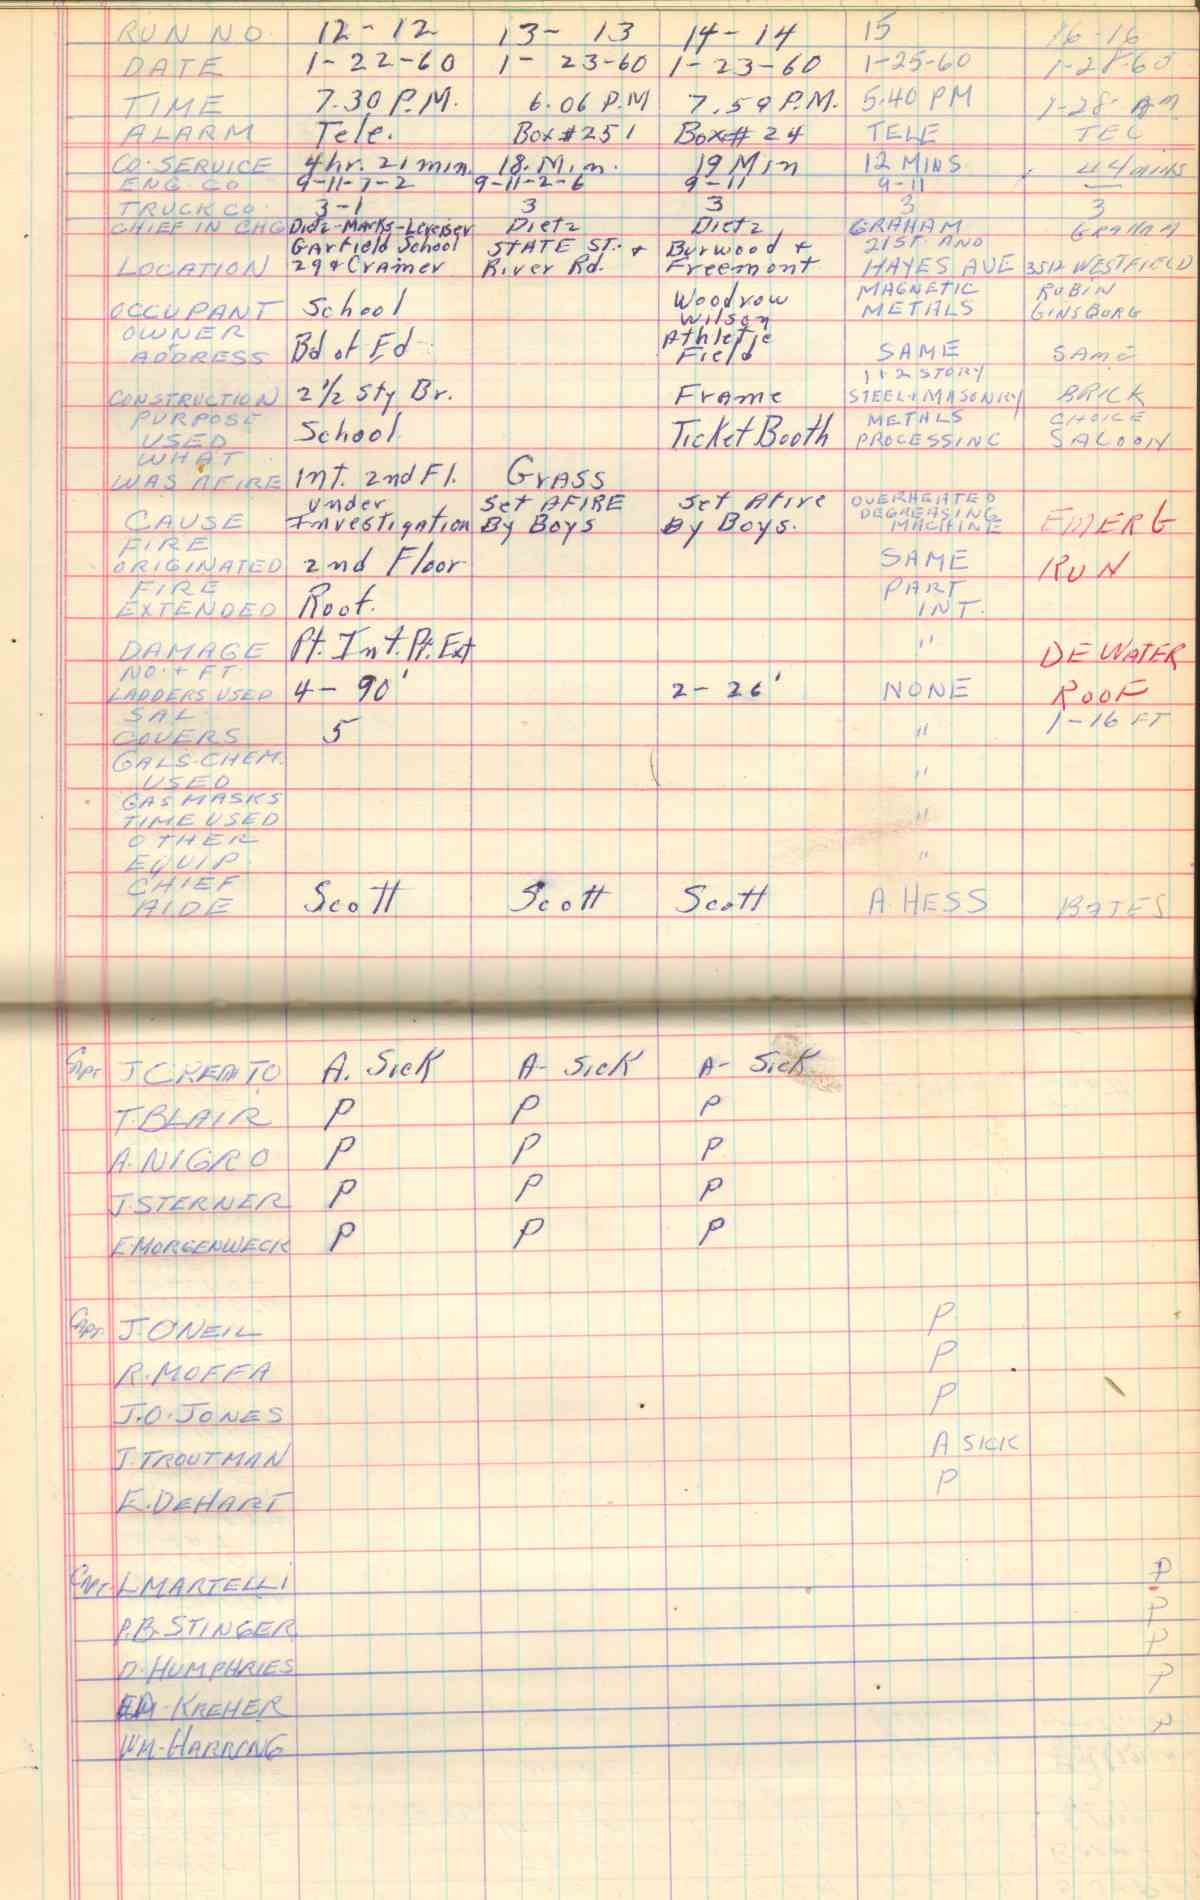 RUN NO. 12-12 13-13 14-14 15 16-16
DATE 1-22-60 1-23-60 1-23-60 1-25-60 1-28-60
TIME 7.30 P.M. 6.06 P.M 7.59 P.M. 5:40 PM
ALARM Tele. Box #251 Box# 24 TELE TEL
CO. SERVICE 4 hr. 21 min. 18. Min. 19 Min 12 MINS. 44 mins
ENG. CO 9-11-7-2 9-11-2-6 9-11 9-11 —
TRUCK CO. 3-1 3 3 3 3
CHIEF IN CHG Dietz-Marks- Dietz Dietz GRAHAM GRAHAM
Garfield School STATE ST. + Burwood + 21ST. AND
LOCATION 29 + Cramer River Rd. Freemont HAYES AVE 3512 WESTFIELD
Woodrow MAGNETIC RUBIN
OCCUPANT School Wilson METALS GINSBURG
OWNER Athletic
ADDRESS Bd of Ed Field SAME SAME
1+2 STORY
CONSTRUCTION 2 1/2 Sty Br. Frame STEEL+MASONRY BRICK
PURPOSE METALS CHOICE
USED School Ticket Booth PROCESSING SALOON
WHAT
WAS AFIRE Int. 2nd Fl. Grass
under Set AFIRE Set Afire OVERHEATED
CAUSE Investigation By Boys By Boys. DEGREASING MACHINE EMERG
FIRE
ORIGINATED 2nd Floor SAME RUN
FIRE PART
EXTENDED Roof. INT.
DAMAGE Pt. Int. Pt. Ext " DEWATER
NO. + FT.
LADDERS USED 4- 90' 2- 26' NONE ROOF
SAL 1-16 FT
COVERS 5 "
GALS. CHEM.
USED "
GAS MASKS
TIME USED "
OTHER
EQUIP. "
CHIEF
AIDE Scott Scott Scott A. HESS BATES
Capt J CREATO A. Sick A- Sick A- Sick
T. BLAIR P P P
A. NIGRO P P P
J. STERNER P P P
F. MORGENWECK P P P
Capt. J. O'NEIL P.
R. MOFFA P
J. O. JONES P
J. TROUTMAN A SICK
E. DEHART P
Capt. L MARTELLI P
P.B. STINGER P
D. HUMPHRIES P
KREHER P
WM. HARRING P